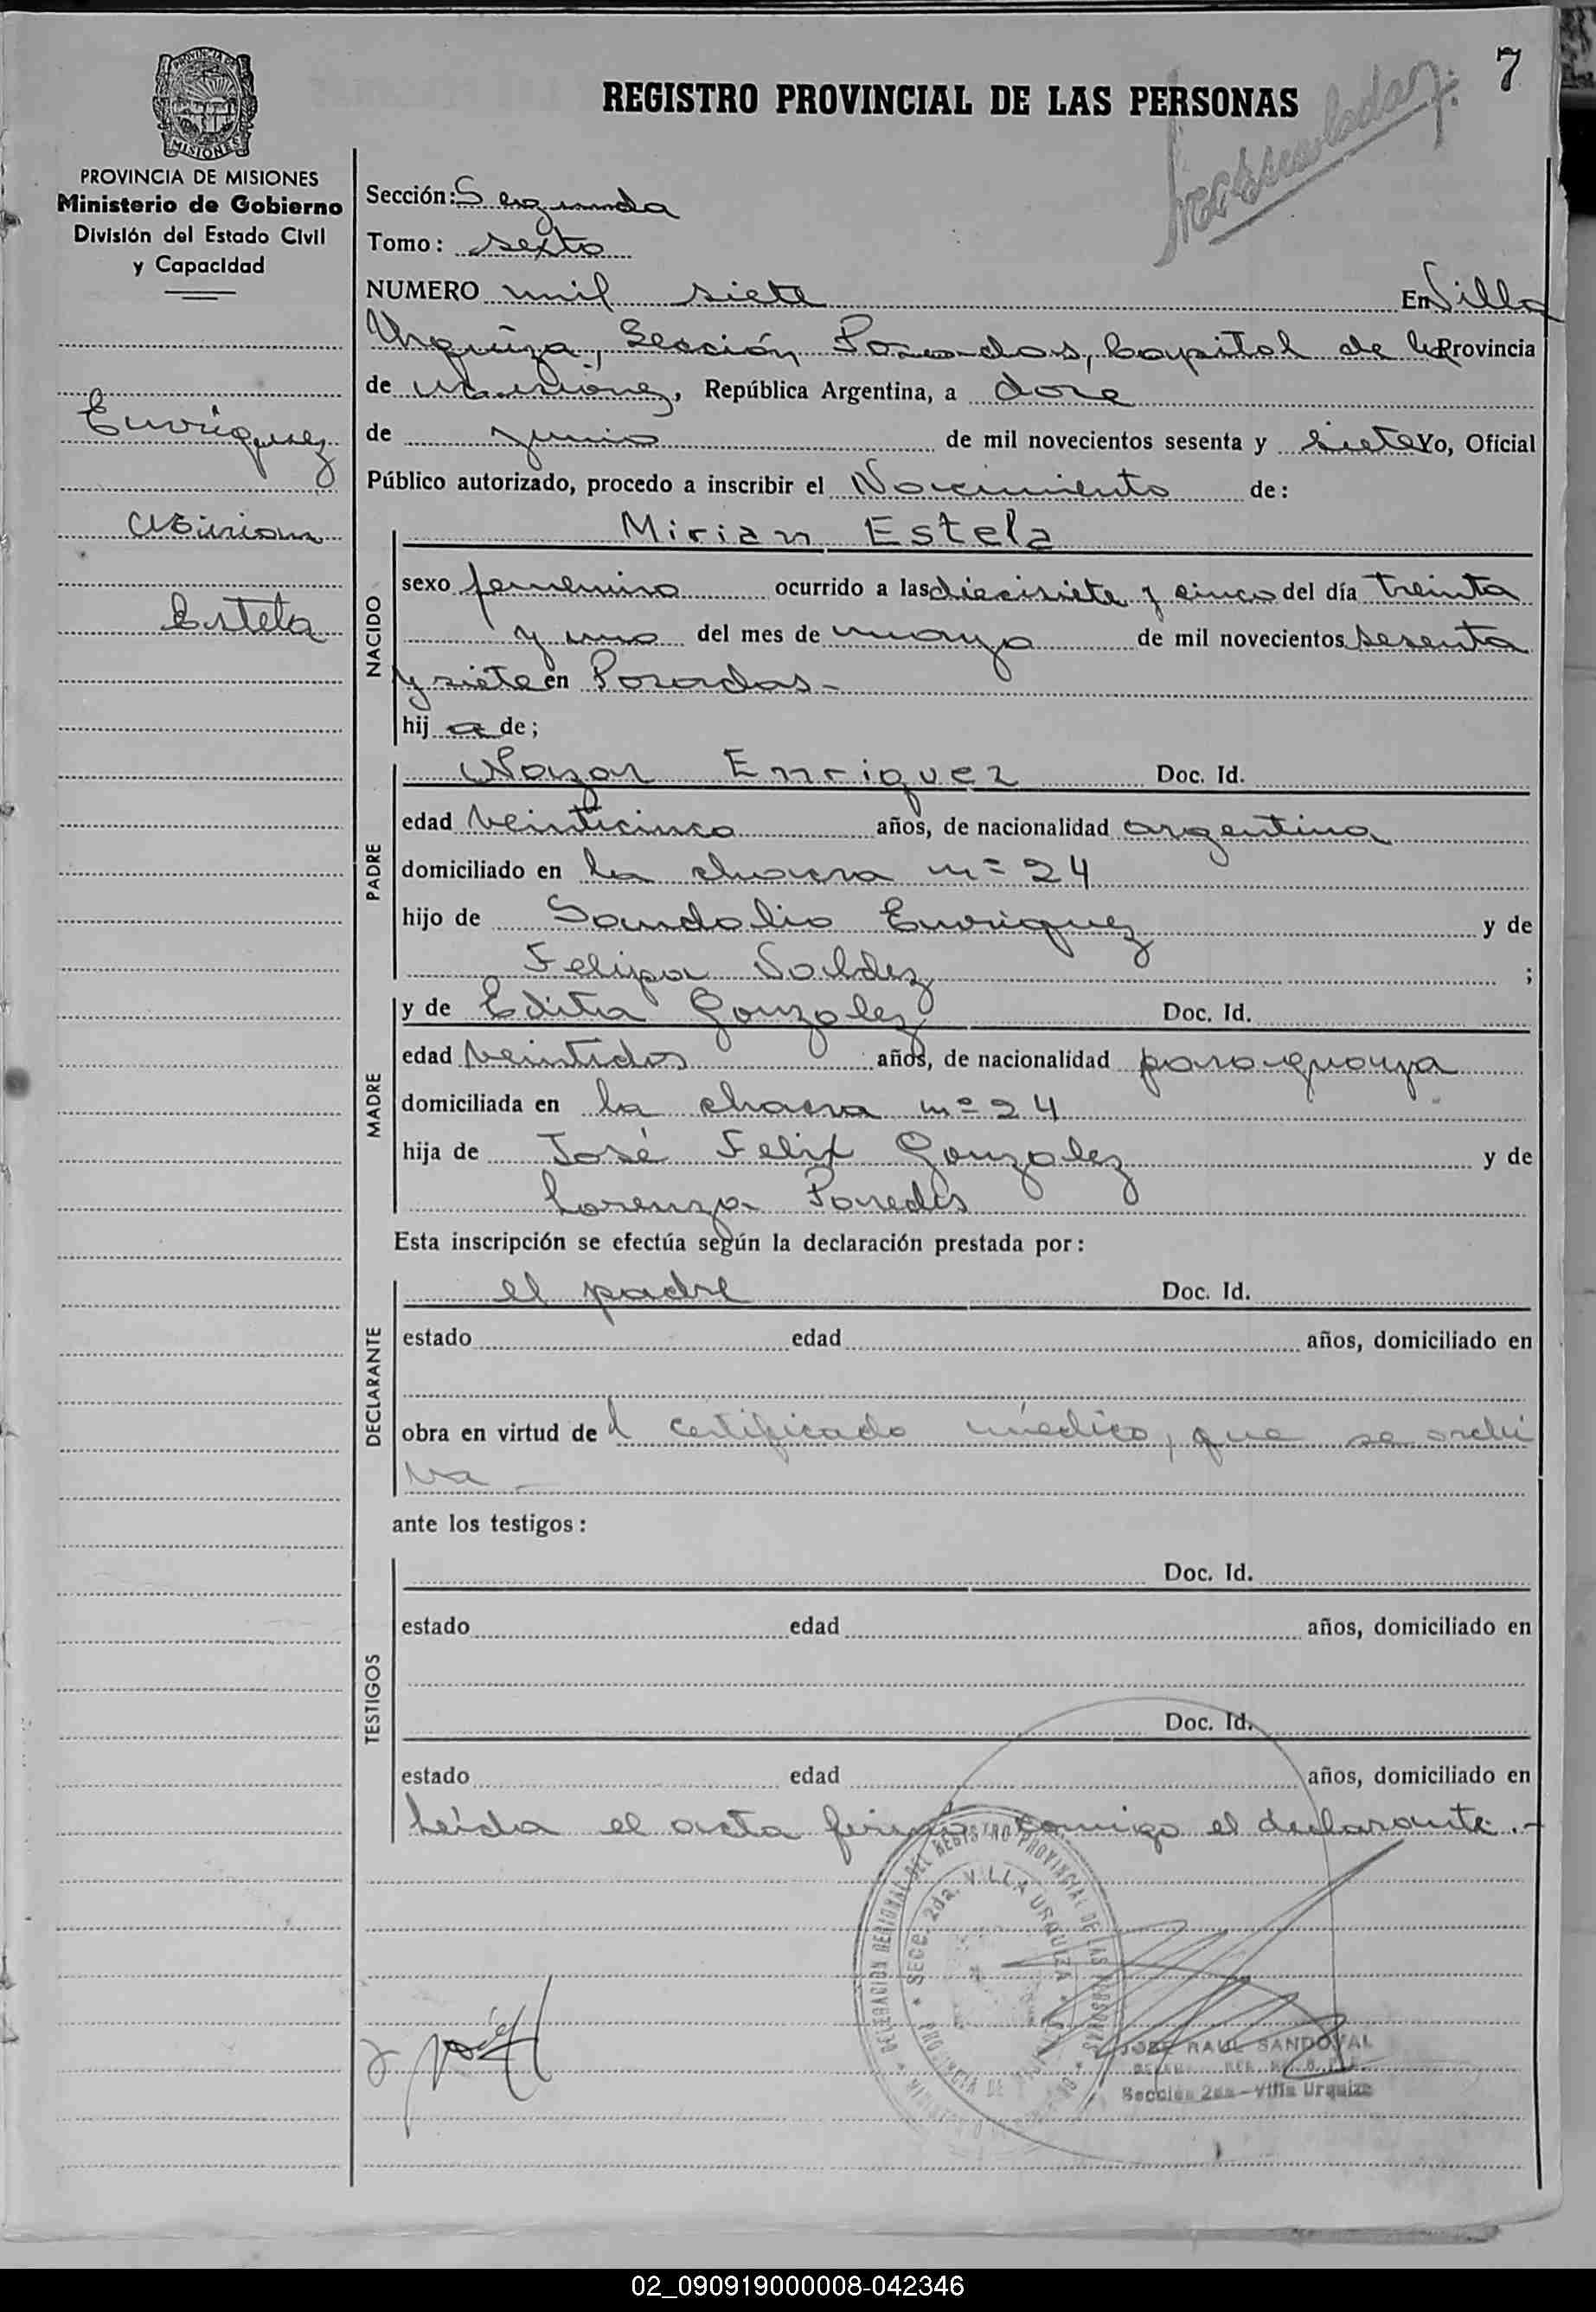 7
REGISTRO PROVINCIAL DE LAS PERSONAS
PROVINCIA DE MISIONES
PROVINCIA DE MISIONES
Ministerio de Gobierno
División del Estado Civil
y Capacidad
Enrriquez
Mirian
Estela
Sección: Segunda
Tomo: sexto
NUMERO mil siete En Villa
Urquiza, Sección Posadas, Capital de la Provincia
de Misiones, República Argentina, a doce
de junio de mil novecientos sesenta y siete Yo, Oficial
Público autorizado, procedo a inscribir el Nacimiento de:
NACIDO
Mirian Estela
sexo femenino ocurrido a las diecisiete y cinco del día treinta
y uno del mes de mayo de mil novecientos sesenta
y siete en Posadas-
hij a de;
PADRE
Enriquez Doc. Id.
edad veinticinco años, de nacionalidad argentina
domiciliado en la chacra nº 24
hijo de Sandalio Enrriquez y de
Felipa Valdez ;
MADRE
y de Edita Gonzalez Doc. Id.
edad veintidos años, de nacionalidad paraguaya
domiciliada en la chacra nº 24
hija de José Felix Gonzalez y de
Lorenza Paredes
Esta inscripción se efectúa según la declaración prestada por:
DECLARANTE
el padre Doc. Id.
estado edad años, domiciliado en
obra en virtud de l certificado médico, que se archi
va -
ante los testigos:
TESTIGOS
Doc. Id.
estado edad años, domiciliado en
Doc. Id.
estado edad años, domiciliado en
Leída el acta firmó conmigo el declarante.-
DELEGACION REGIONAL DEL REGISTRO PROVINCIAL DE LAS PERSONAS
SECC. 2da. VILLA URQUIZA
JOSE RAUL SANDOVAL
Sección 2da - Villa Urquiza
02_090919000008-042346